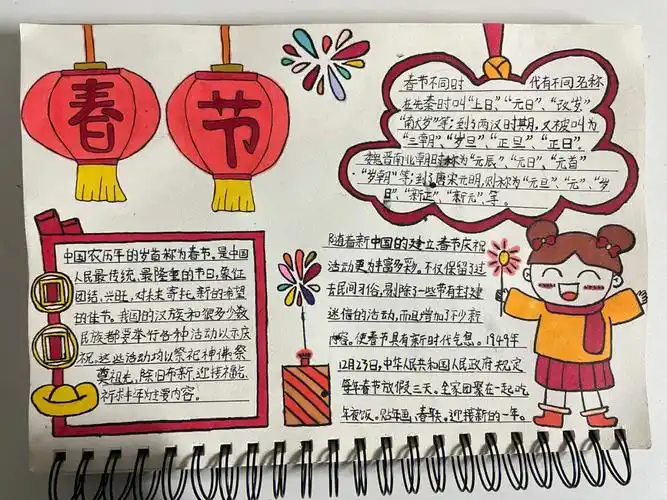 春节
春节不同时 代有不同名称
在先秦时叫“上日”、“元日”、“改岁”、
“献岁”等；到了两汉时期，又被叫为
“三朝”、“岁旦”、“正旦”、“正日”、
魏晋南北朝时称为“元辰”、“元日”、“元首”
“岁朝”等；到了唐宋元明，则称为“元旦”、“元”、“岁
日”、“新正”、“新元”、等。
中国农历年的岁首称为春节。是中国
人民最传统、最隆重的节日，象征
团结、兴旺，对未来寄托，新的希望
的佳节。我国的汉族和很多少数
民族都要举行各种活动以示庆
祝，这些活动均以祭祀神佛、祭
奠祖先，除旧布新，迎禧
祈求丰年为主要内容。
随着新中国的建立春节庆祝
活动更为丰富多彩。不仅保留了过
去民间习俗，剔除了一些带有封建
迷信的活动，而且增加了不少新
内容。使春节具有新时代气息。1949年
12月23日，中华人民共和国人民政府规定
每年春节放假三天。全家团聚在一起吃
年夜饭。贴年画，春联。迎接新的一年。